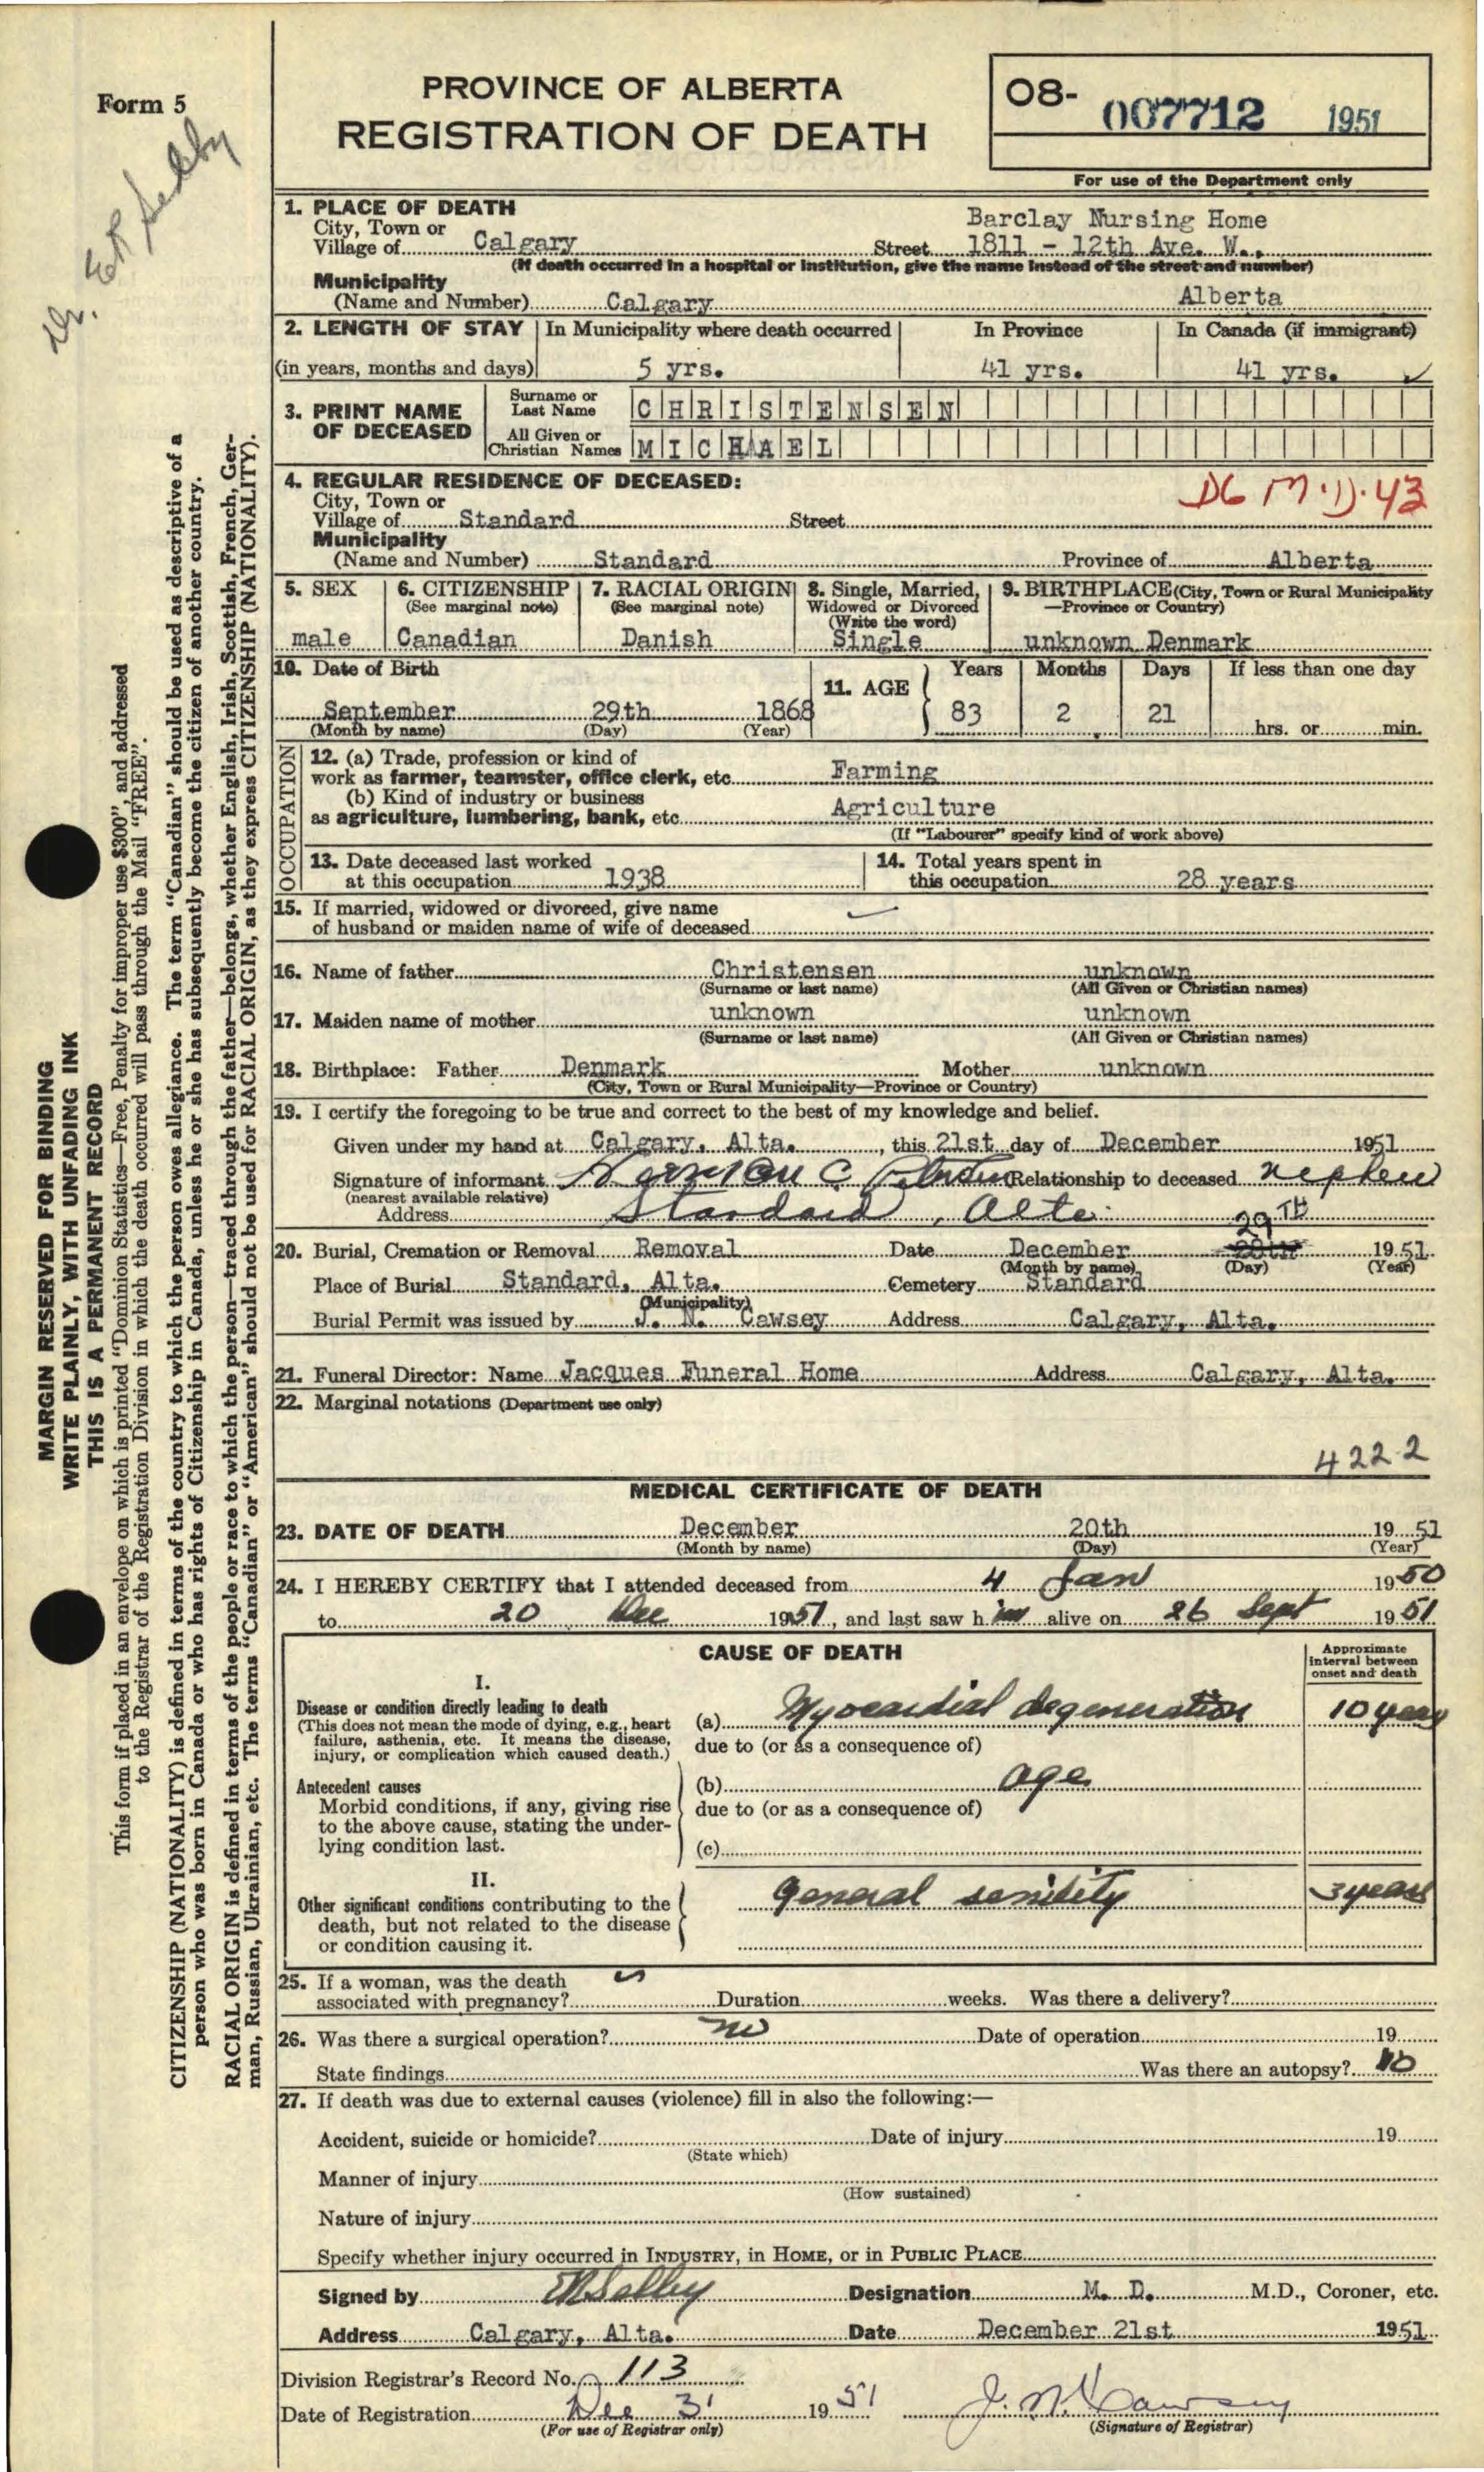 Form 5
Dr. E R Selby
PROVINCE OF ALBERTA
REGISTRATION OF DEATH
08- 007712 1951
For use of the Department only
1. PLACE OF DEATH
Barclay Nursing Home
City, Town or
Village of Calgary Street 1811 - 12th Ave. W.,
(If death occurred in a hospital or institution, give the name instead of the street and number)
Municipality
(Name and Number) Calgary Alberta
2. LENGTH OF STAY In Municipality where death occurred In Province In Canada (if immigrant)
(in years, months and days) 5 yrs. 41 yrs. 41 yrs. ✓
3. PRINT NAME OF DECEASED
Surname or Last Name CHRISTENSEN
All Given or Christian Names MICHAEL
4. REGULAR RESIDENCE OF DECEASED:
DG M.D. 43
City, Town or
Village of Standard Street
Municipality
(Name and Number) Standard Province of Alberta
5. SEX 6. CITIZENSHIP 7. RACIAL ORIGIN 8. Single, Married, 9. BIRTHPLACE (City, Town or Rural Municipality
(See marginal note) (See marginal note) Widowed or Divorced —Province or Country)
(Write the word)
male Canadian Danish Single unknown Denmark
10. Date of Birth 11. AGE Years Months Days If less than one day
September 29th 1868 83 2 21 hrs. or min.
(Month by name) (Day) (Year)
OCCUPATION
12. (a) Trade, profession or kind of
work as farmer, teamster, office clerk, etc. Farming
(b) Kind of industry or business
as agriculture, lumbering, bank, etc. Agriculture
(If "Labourer" specify kind of work above)
13. Date deceased last worked 14. Total years spent in
at this occupation 1938 this occupation 28 years
15. If married, widowed or divorced, give name
of husband or maiden name of wife of deceased
16. Name of father Christensen unknown
(Surname or last name) (All Given or Christian names)
17. Maiden name of mother unknown unknown
(Surname or last name) (All Given or Christian names)
18. Birthplace: Father Denmark Mother unknown
(City, Town or Rural Municipality—Province or Country)
19. I certify the foregoing to be true and correct to the best of my knowledge and belief.
Given under my hand at Calgary, Alta., this 21st day of December 1951
Signature of informant Norman C Relationship to deceased nephew
(nearest available relative)
Address Standard, Alta.
29TH
20. Burial, Cremation or Removal Removal Date December 1951
(Month by name) (Day) (Year)
Place of Burial Standard, Alta. Cemetery Standard
(Municipality)
Burial Permit was issued by J. N. Cawsey Address Calgary, Alta.
21. Funeral Director: Name Jacques Funeral Home Address Calgary, Alta.
22. Marginal notations (Department use only)
422 2
MEDICAL CERTIFICATE OF DEATH
23. DATE OF DEATH December 20th 1951
(Month by name) (Day) (Year)
24. I HEREBY CERTIFY that I attended deceased from 4 Jan 1950
to 20 Dec 1951, and last saw him alive on 26 Sept 1951
CAUSE OF DEATH
Approximate interval between onset and death
I.
Disease or condition directly leading to death
(This does not mean the mode of dying, e.g., heart failure, asthenia, etc. It means the disease, injury, or complication which caused death.)
(a) Myocardial degeneration 10 years
due to (or as a consequence of)
Antecedent causes
Morbid conditions, if any, giving rise to the above cause, stating the underlying condition last.
(b) age
due to (or as a consequence of)
(c)
II.
Other significant conditions contributing to the death, but not related to the disease or condition causing it.
General senility 3 years
25. If a woman, was the death
associated with pregnancy? Duration weeks. Was there a delivery?
26. Was there a surgical operation? no Date of operation 19
State findings Was there an autopsy? no
27. If death was due to external causes (violence) fill in also the following:—
Accident, suicide or homicide? Date of injury 19
(State which)
Manner of injury
(How sustained)
Nature of injury
Specify whether injury occurred in INDUSTRY, in HOME, or in PUBLIC PLACE
Signed by ER Selby Designation M. D. M.D., Coroner, etc.
Address Calgary, Alta. Date December 21st 1951
Division Registrar's Record No. 113
Date of Registration Dec 31 1951 J. N. Cawsey
(For use of Registrar only) (Signature of Registrar)
MARGIN RESERVED FOR BINDING
WRITE PLAINLY, WITH UNFADING INK
THIS IS A PERMANENT RECORD
This form if placed in an envelope on which is printed "Dominion Statistics—Free, Penalty for improper use $300", and addressed
to the Registrar of the Registration Division in which the death occurred will pass through the Mail "FREE".
CITIZENSHIP (NATIONALITY) is defined in terms of the country to which the person owes allegiance. The term "Canadian" should be used as descriptive of a
person who was born in Canada or who has rights of Citizenship in Canada, unless he or she has subsequently become the citizen of another country.
RACIAL ORIGIN is defined in terms of the people or race to which the person—traced through the father—belongs, whether English, Irish, Scottish, French, Ger-
man, Russian, Ukrainian, etc. The terms "Canadian" or "American" should not be used for RACIAL ORIGIN, as they express CITIZENSHIP (NATIONALITY).